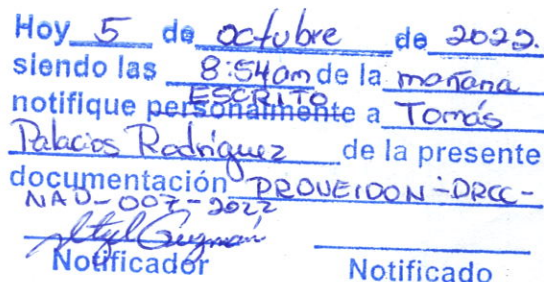 Hoy 5 de octubre de 2022.
siendo las 8:54am de la mañana
ESCRITO
notifique personalmente a Tomás
Palacios Rodríguez de la presente
documentación PROVEIDO N -DRCC-
NAU-007-2022
Guzmán
Notificador Notificado